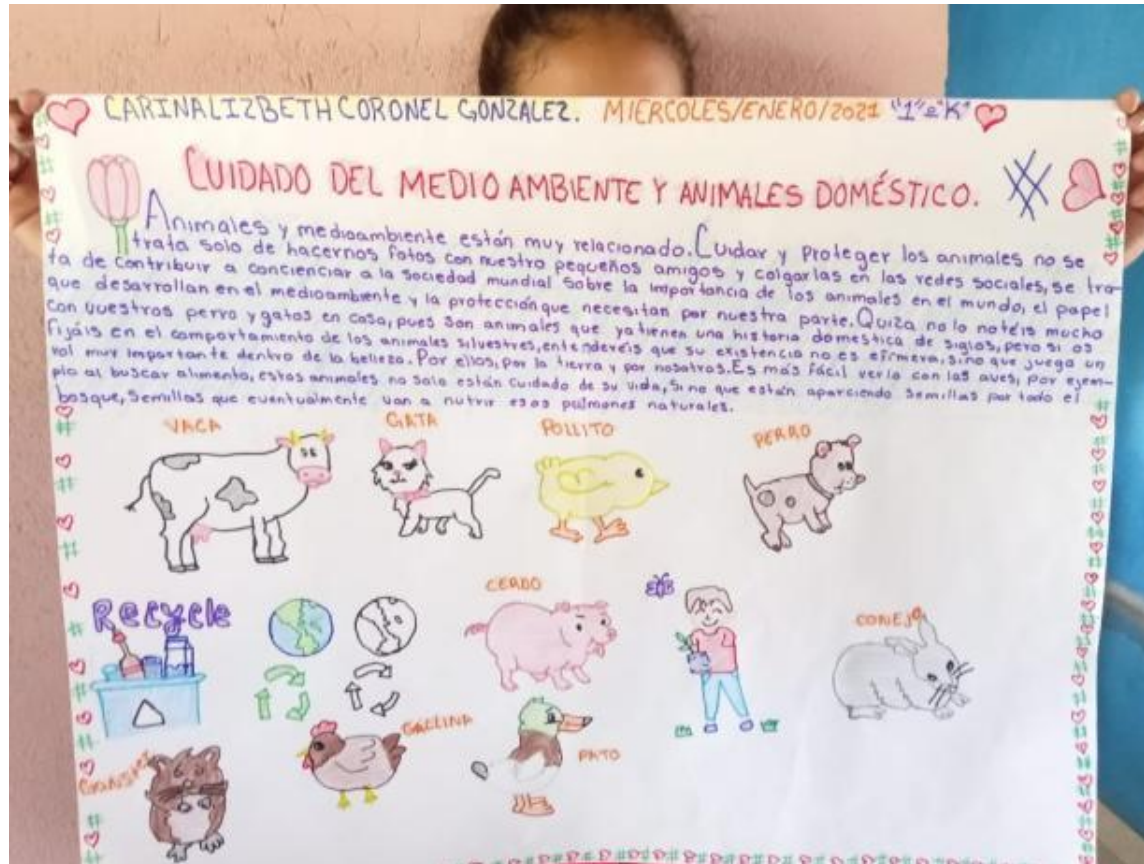 CARINA LIZBETH CORONEL GONZALEZ. MIERCOLES/ENERO/2021 "1"e"K"
CUIDADO DEL MEDIO AMBIENTE Y ANIMALES DOMÉSTICO.
Animales y medioambiente están muy relacionado. Cuidar y Proteger los animales no se
trata solo de hacernos fotos con nuestro pequeños amigos y colgarlas en las redes sociales, se tra-
ta de contribuir a concienciar a la sociedad mundial sobre la importancia de los animales en el mundo, el papel
que desarrollan en el medioambiente y la protección que necesitan por nuestra parte. Quiza no lo notéis mucho
con vuestros perro y gatos en casa, pues son animales que ya tienen una historia domestica de siglos, pero si os
fijáis en el comportamiento de los animales silvestres, entenderéis que su existencia no es efimera, sino que juega un
rol muy importante dentro de la belleza. Por ellos, por la tierra y por nosotros. Es más fácil verlo con las aves, por ejem-
plo al buscar alimento, estos animales no solo están cuidado de su vida, Si no que están apareciendo semillas por todo el
bosque, Semillas que eventualmente van a nutrir esos pulmones naturales.
VACA GATA POLLITO PERRO
Recycle CERDO CONEJO
GALLINA PATO